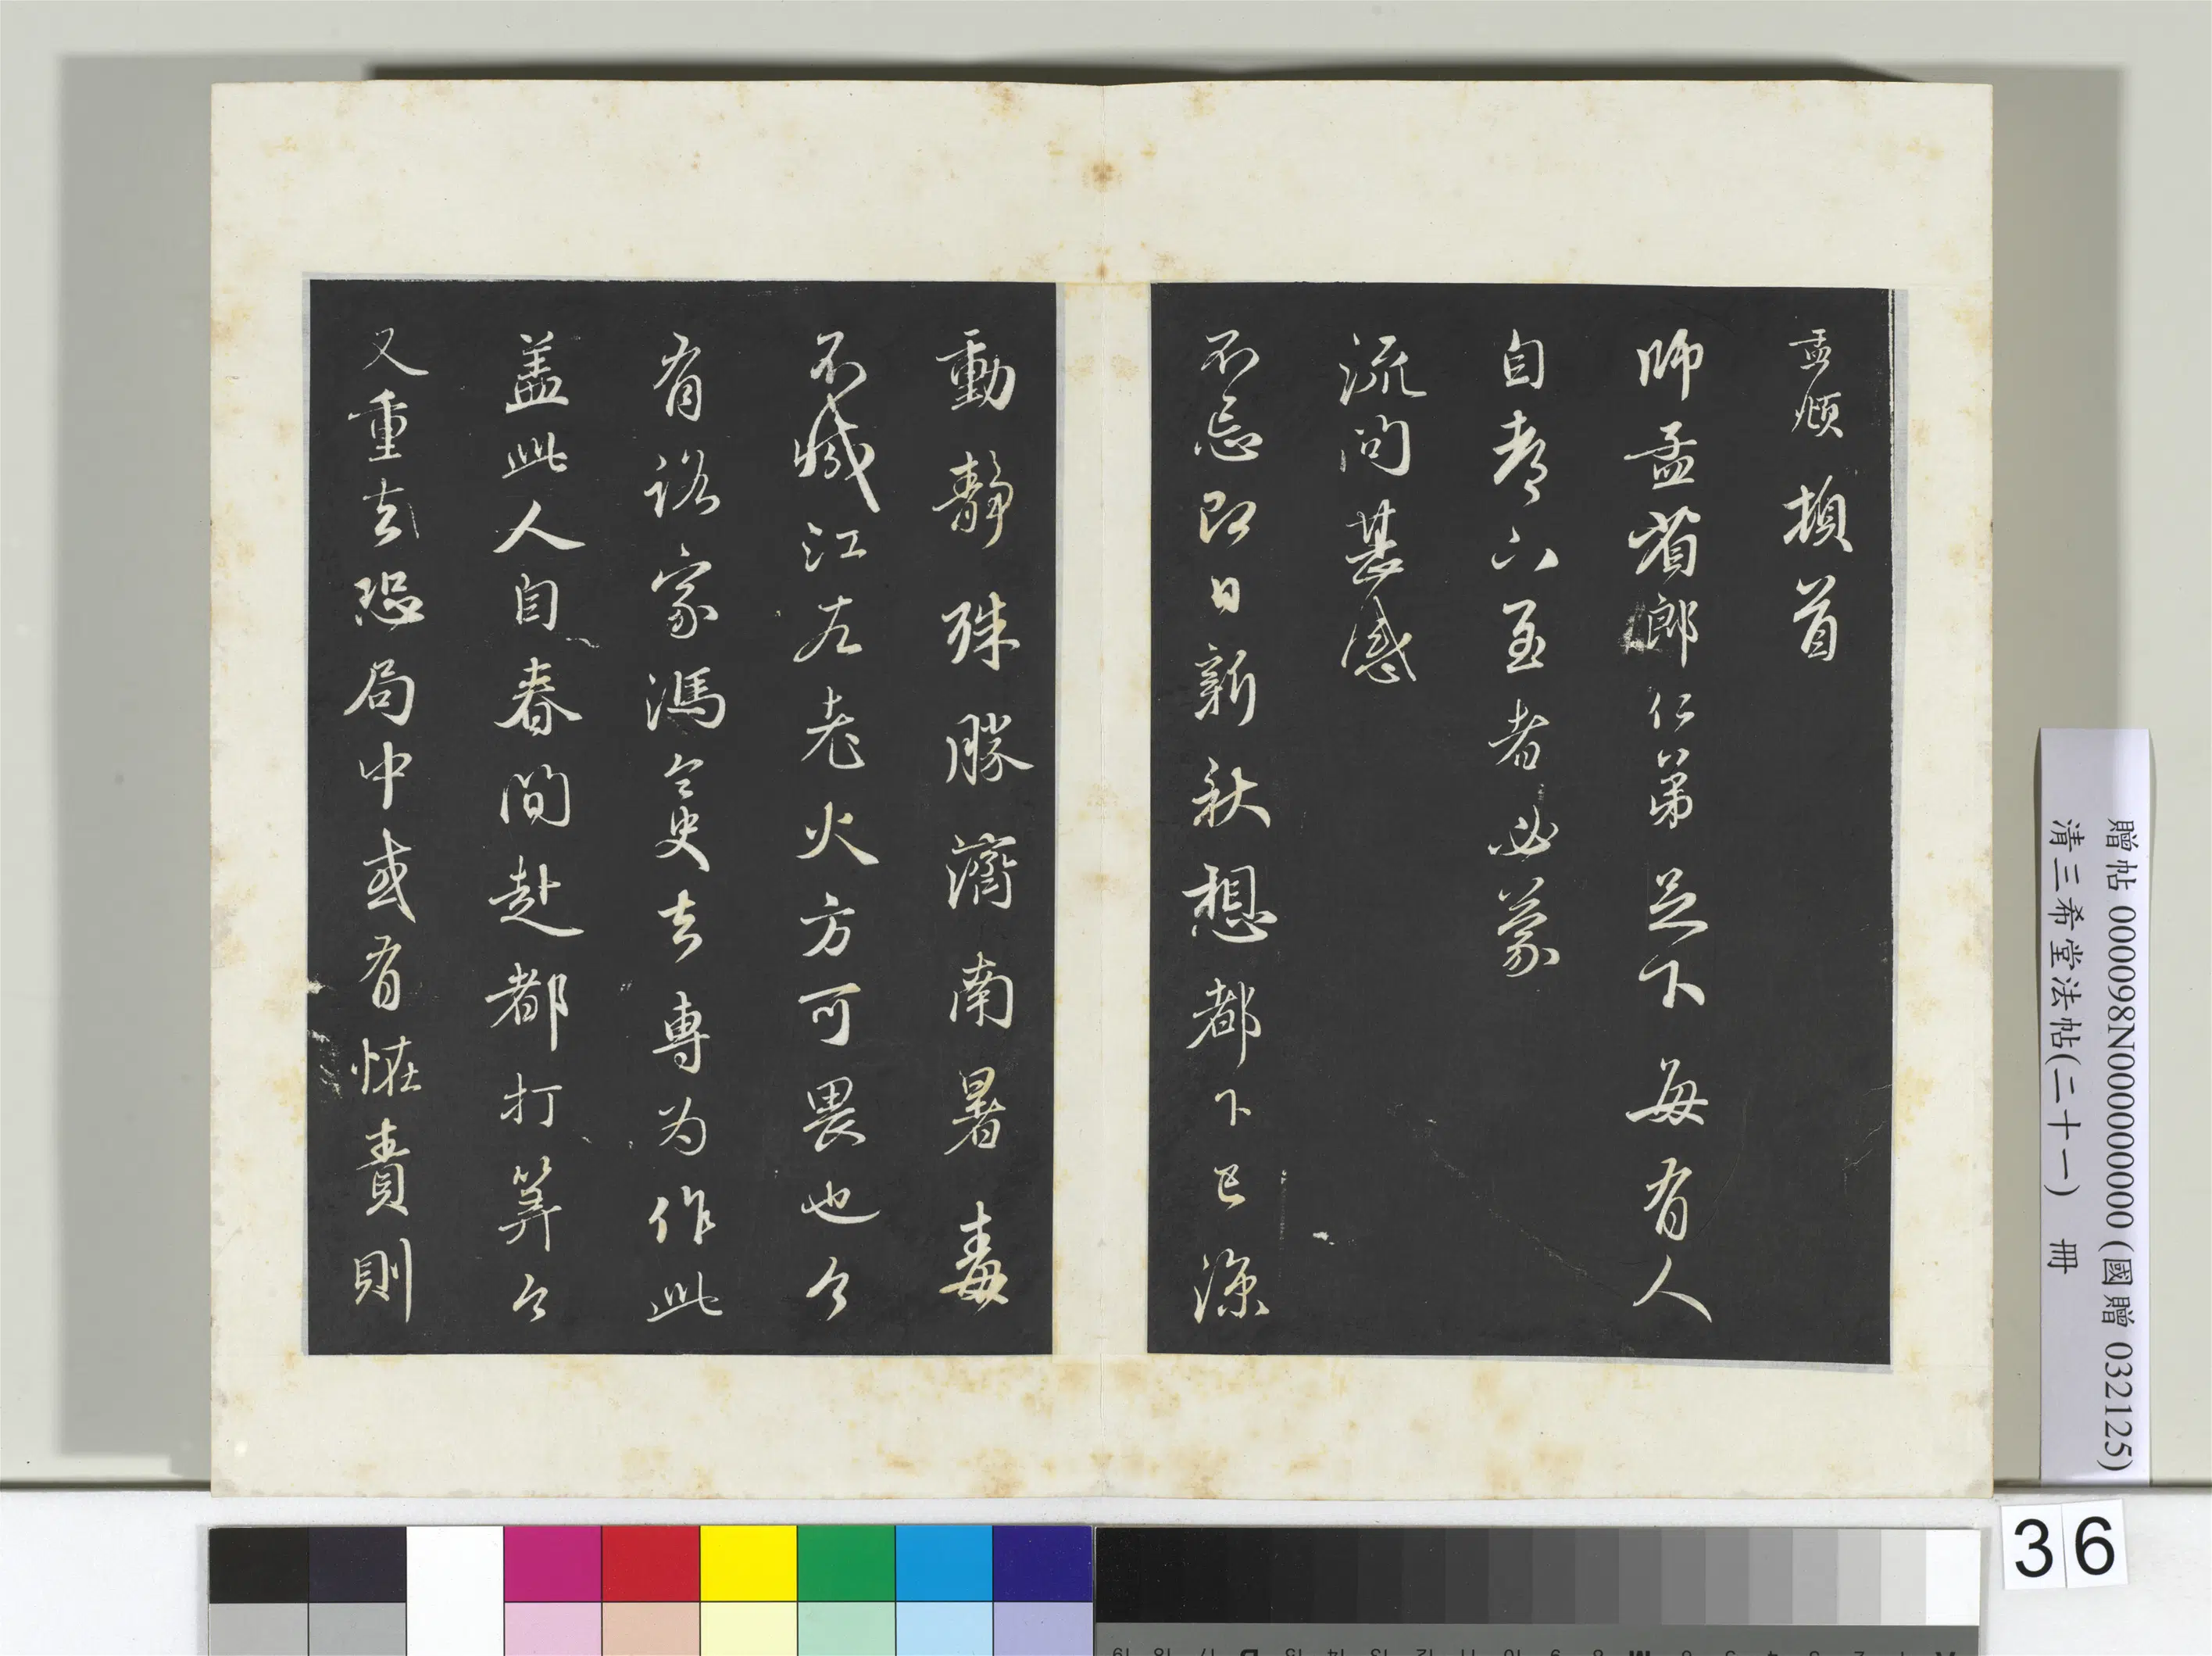 孟頫頓首
師孟省郎仁弟足下每有人
自都下至者必蒙
流問甚感
不忘即日新秋想都下已涼
動靜殊勝濟南暑毒
不減江左老火方可畏也今
有詻家馮令史去專为作此
盖此人自春間赴都打筭今
又重去恐局中或有恠責則
贈帖 000098N000000000 (國贈 032125)
清三希堂法帖(二十一) 冊
36